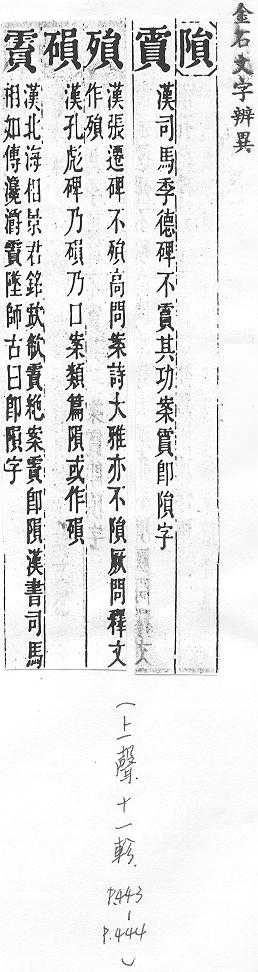 金石文字辨異
隕
霣
漢司馬季德碑不霣其功案霣即隕字
殞
漢張遷碑不殞高問案詩大雅亦不隕厥問釋文
作殞
磒
漢孔彪碑乃磒乃囗案類篇隕或作磒
霣
漢北海相景君銘歔欷霣絶案霣即隕漢書司馬
相如傳瀺灂霣墜師古曰即隕字
(上聲十一軫
P.443
-
P.444)